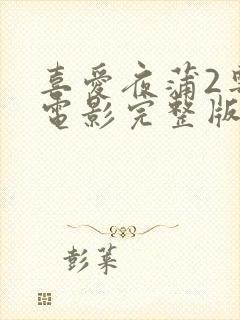 喜愛夜蒲2粵
電影完整版
彭萊